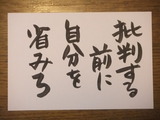 批判する
前に
自分を
省みろ